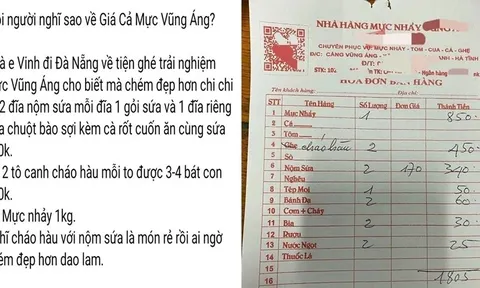 ọi người nghĩ sao về Giá Cả Mực Vũng Áng?
à e Vinh đi Đà Nẵng về tiện ghé trải nghiệm
ực Vũng Áng cho biết mà chém đẹp hơn chi chi
2 đĩa nộm sứa mỗi đĩa 1 gỏi sứa và 1 đĩa riêng
a chuột bào sợi kèm cà rốt cuốn ăn cùng sứa
0k.
2 tô canh cháo hàu mỗi to được 3-4 bát con
0k.
Mực nhảy 1kg.
hĩ cháo hàu với nộm sứa là món rẻ rồi ai ngờ
ém đẹp hơn dao lam.
NHÀ HÀNG MỰC NHẢY
CHUYÊN PHỤC VỤ: MỰC NHẢY - TÔM - CUA - CÁ - GHẸ
Đ/C: CẢNG VŨNG ÁNG - HÀ TĨNH
ĐT:
STK: 102
HÓA ĐƠN BÁN HÀNG
Tên khách hàng:
Địa chỉ:
STT Tên Hàng Số Lượng Đơn Giá Thành Tiền
1 Mực Nhảy 1 850
2 Cá
3 Tôm
4 Ghẹ cháo hàu 2 450
5 Sò
6 Nộm Sứa 2 170 340
7 Nghêu
8 Tép Moi 1 50
9 Bánh Đa 2 60
10 Cơm + Cháy
11 Bia 2 30
12 Rượu
13 Nước Ngọt 2 25
14 Thuốc Lá
15
16 1805